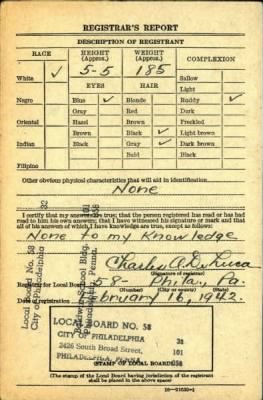 REGISTRAR'S REPORT
DESCRIPTION OF REGISTRANT
RACE HEIGHT (Approx.) WEIGHT (Approx.) COMPLEXION
White ✓ 5-5 185 Sallow
Light
EYES HAIR
Negro Blue ✓ Blonde Ruddy ✓
Gray Red Dark
Oriental Hazel Brown Freckled
Brown Black ✓ Light brown
Indian Black Gray ✓ Dark brown
Bald Black
Filipino
Other obvious physical characteristics that will aid in identification
None
I certify that my answers are true; that the person registered has read or has had
read to him his own answers; that I have witnessed his signature or mark and that
all of his answers of which I have knowledge are true, except as follows:
None to my Knowledge
Charles A. DeLuca
Registrar for Local Board 58 Phila., Pa.
(Number) (City or county) (State)
Date of registration February 16, 1942.
Local Board No. 58 32
City of Philadelphia
Baldwin School Bldg. 101
Philadelphia, Penna. 058
LOCAL BOARD NO. 58
CITY OF PHILADELPHIA 32
2426 South Broad Street, 101
PHILADELPHIA, PENNA 058
(STAMP OF LOCAL BOARD)
(The stamp of the Local Board having jurisdiction of the registrant
shall be placed in the above space)
16—21630-1